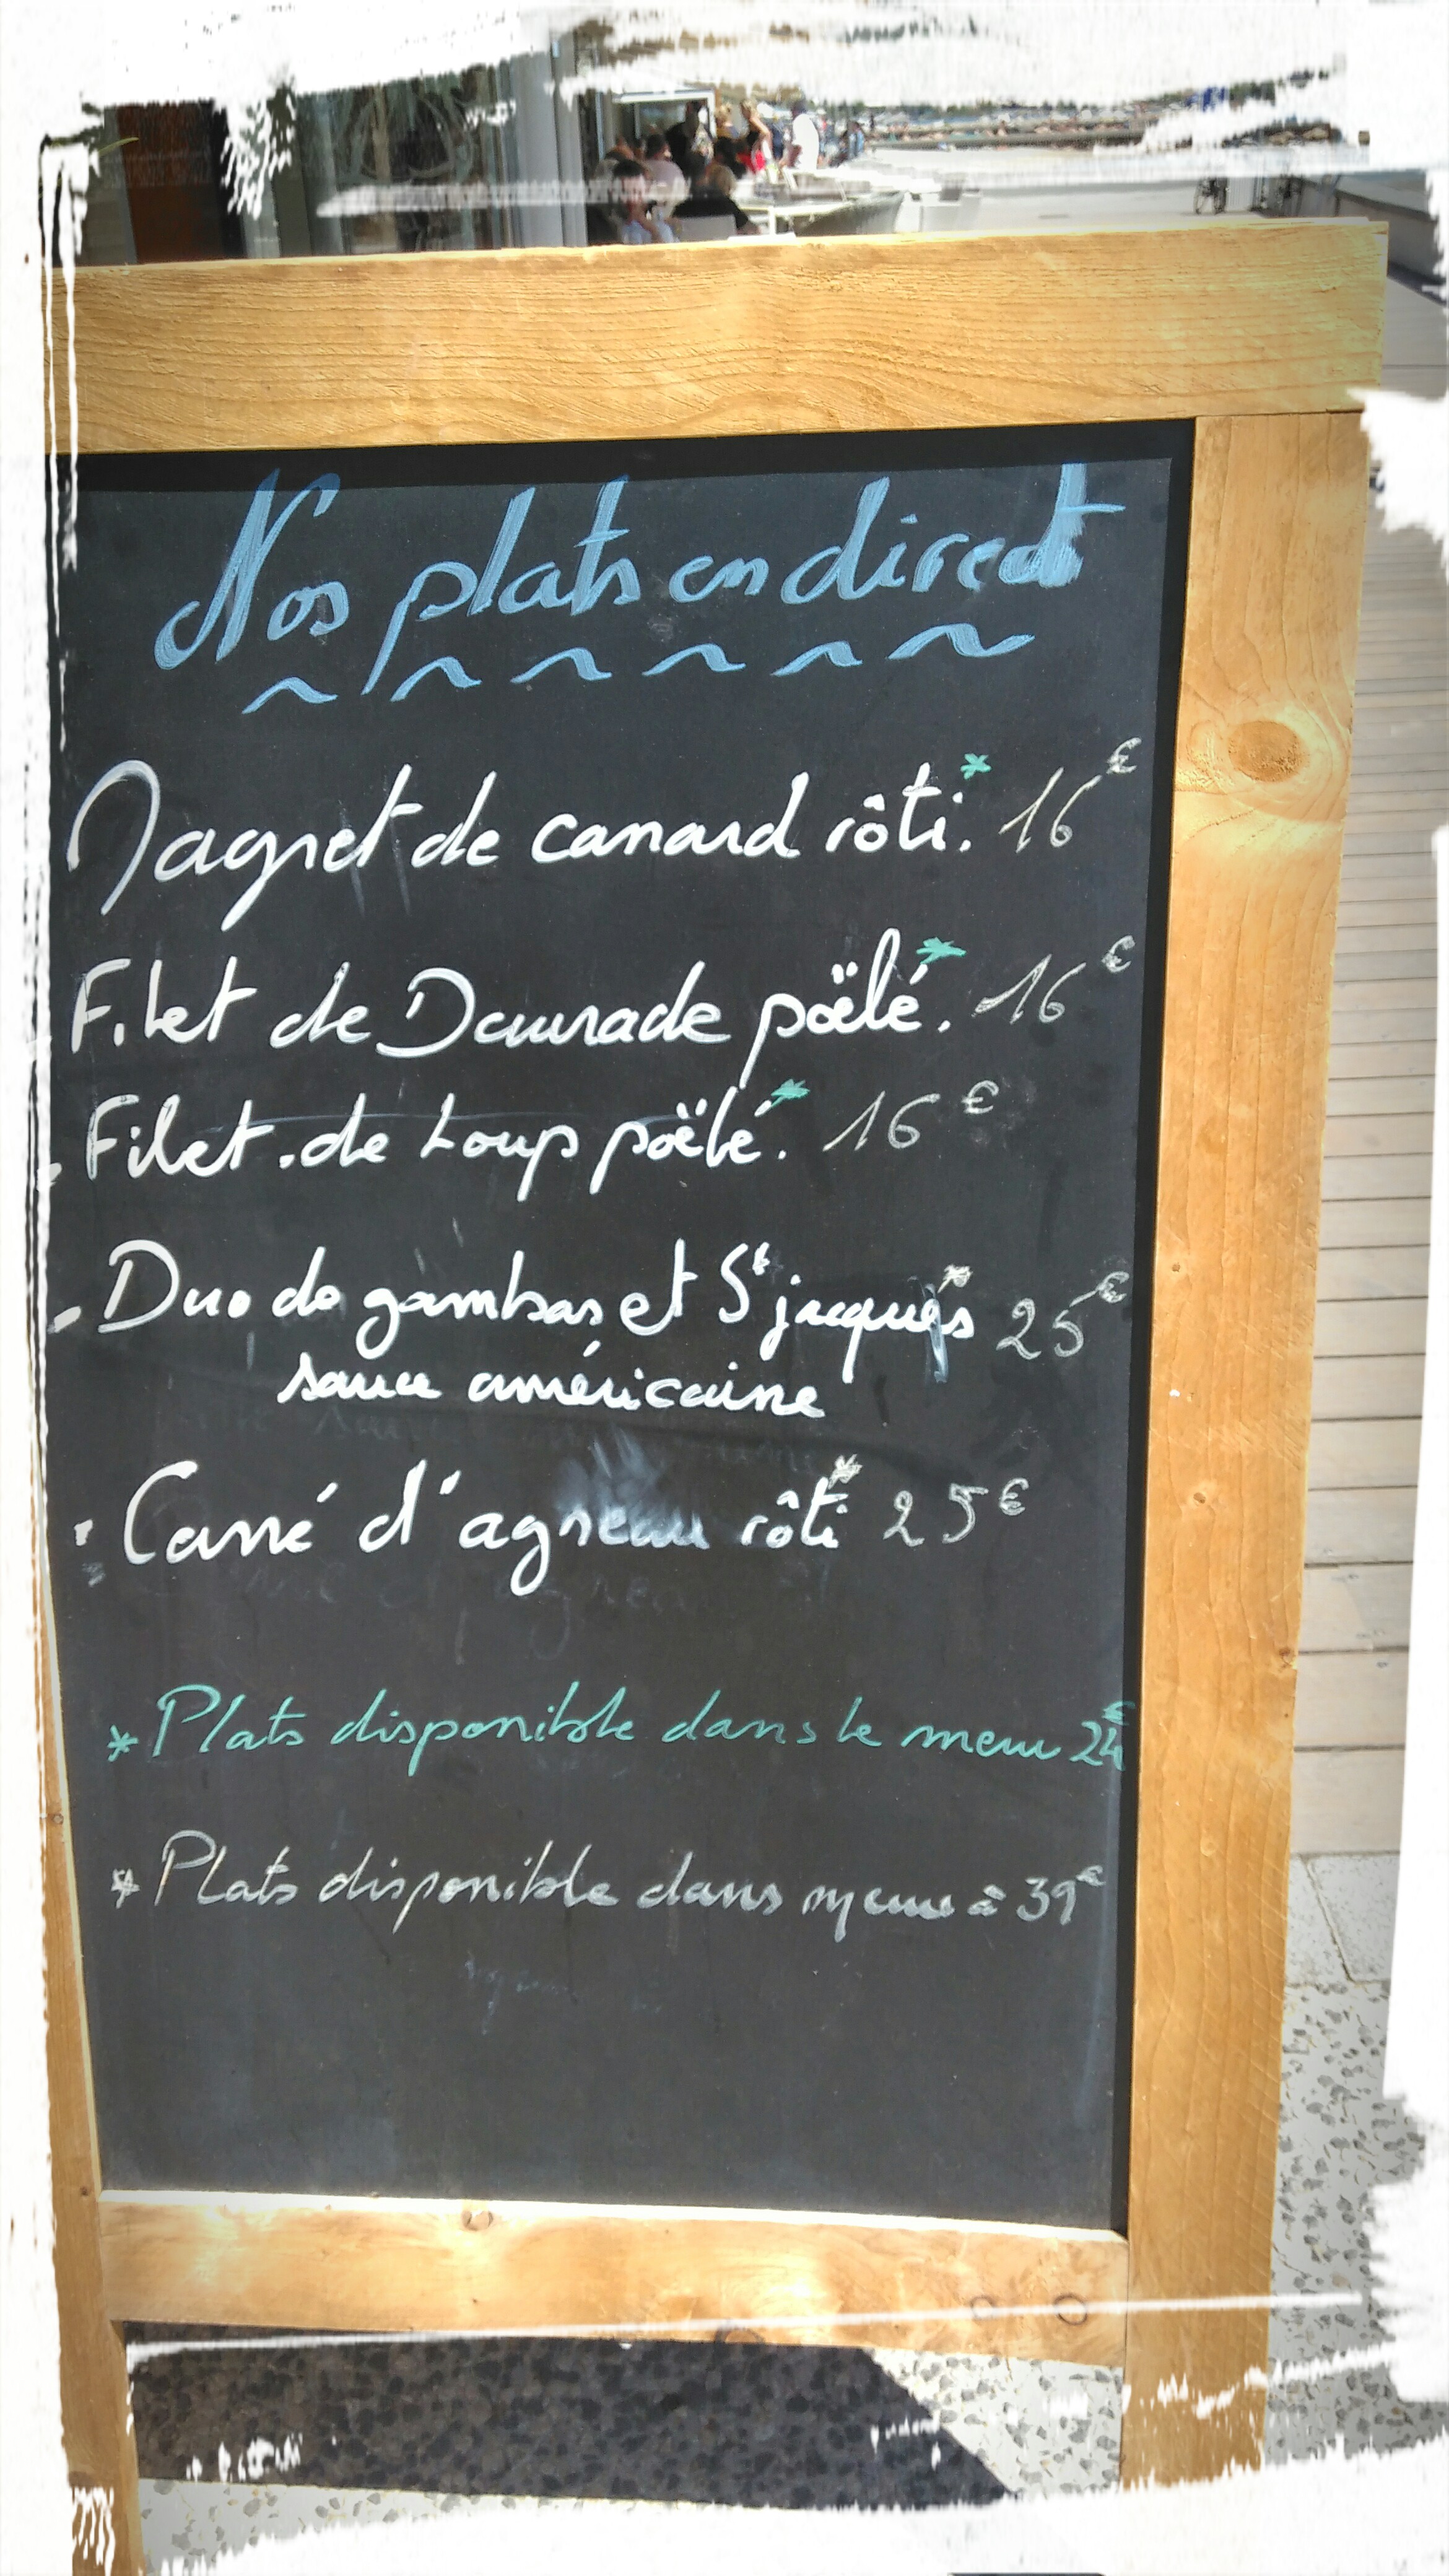 Nos plats en direct
Magret de canard rôti.* 16€
Filet de Daurade poëlé.* 16€
Filet.de Loup poëlé.* 16€
- Duo de gambas et St jacques* 25€
sauce américaine
- Carré d'agneau rôti* 25€
* Plats disponible dans le menu 24€
* Plats disponible dans menu à 39€